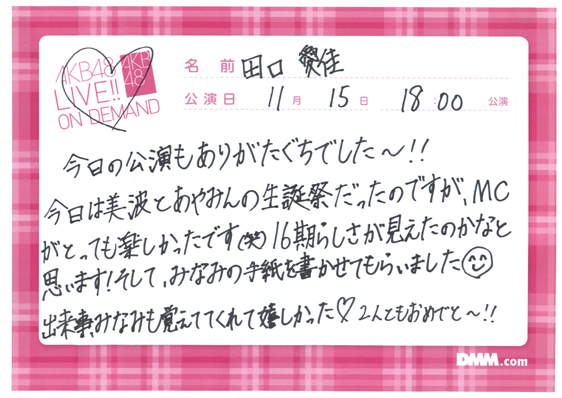 AKB48
LIVE!!
ON DEMAND
AKB
48
名前 田口 愛佳
公演日 11月 15日 18:00 公演
今日の公演もありがたぐちでした〜!!
今日は美波とあやみんの生誕祭だったのですが、MC
がとっても楽しかったです(笑)16期らしさが見えたのかなと
思います!そして、みなみの手紙を書かせてもらいました
出来事みなみも覚えててくれて嬉しかった♡2人ともおめでと〜!!
DMM.com